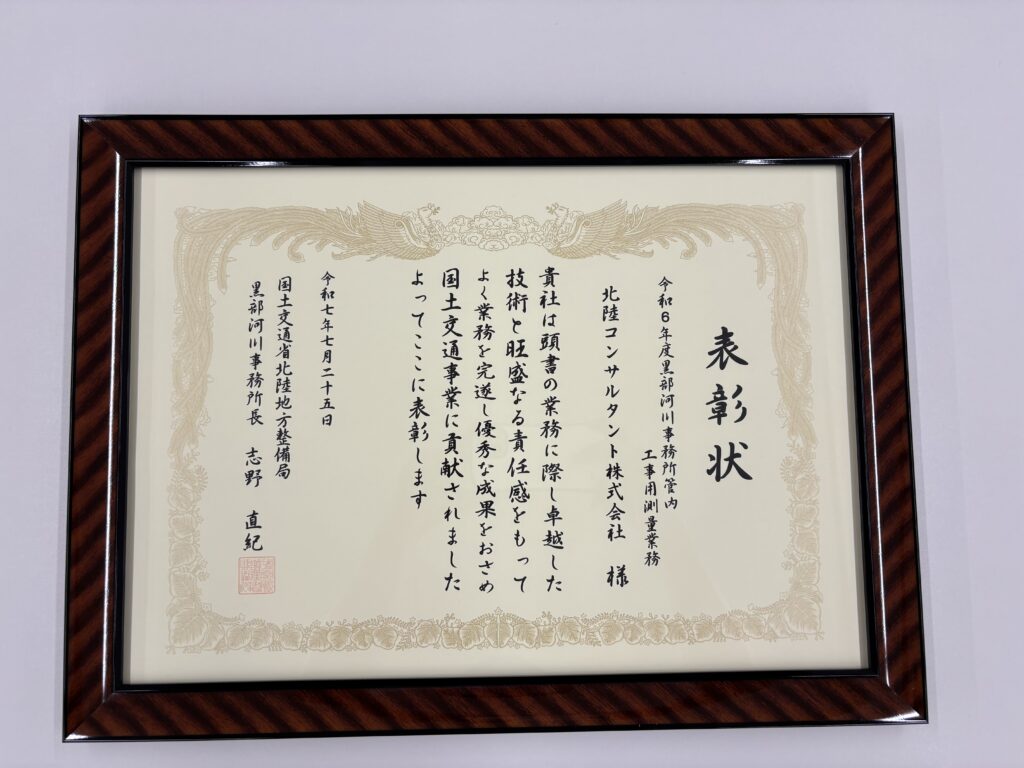 表彰状
令和6年度黒部河川事務所管内
工事用測量業務
北陸コンサルタント株式会社 様
貴社は頭書の業務に際し卓越した
技術と旺盛なる責任感をもって
よく業務を完遂し優秀な成果をおさめ
国土交通事業に貢献されました
よってここに表彰します
令和七年七月二十五日
国土交通省北陸地方整備局
黒部河川事務所長 志野 直紀